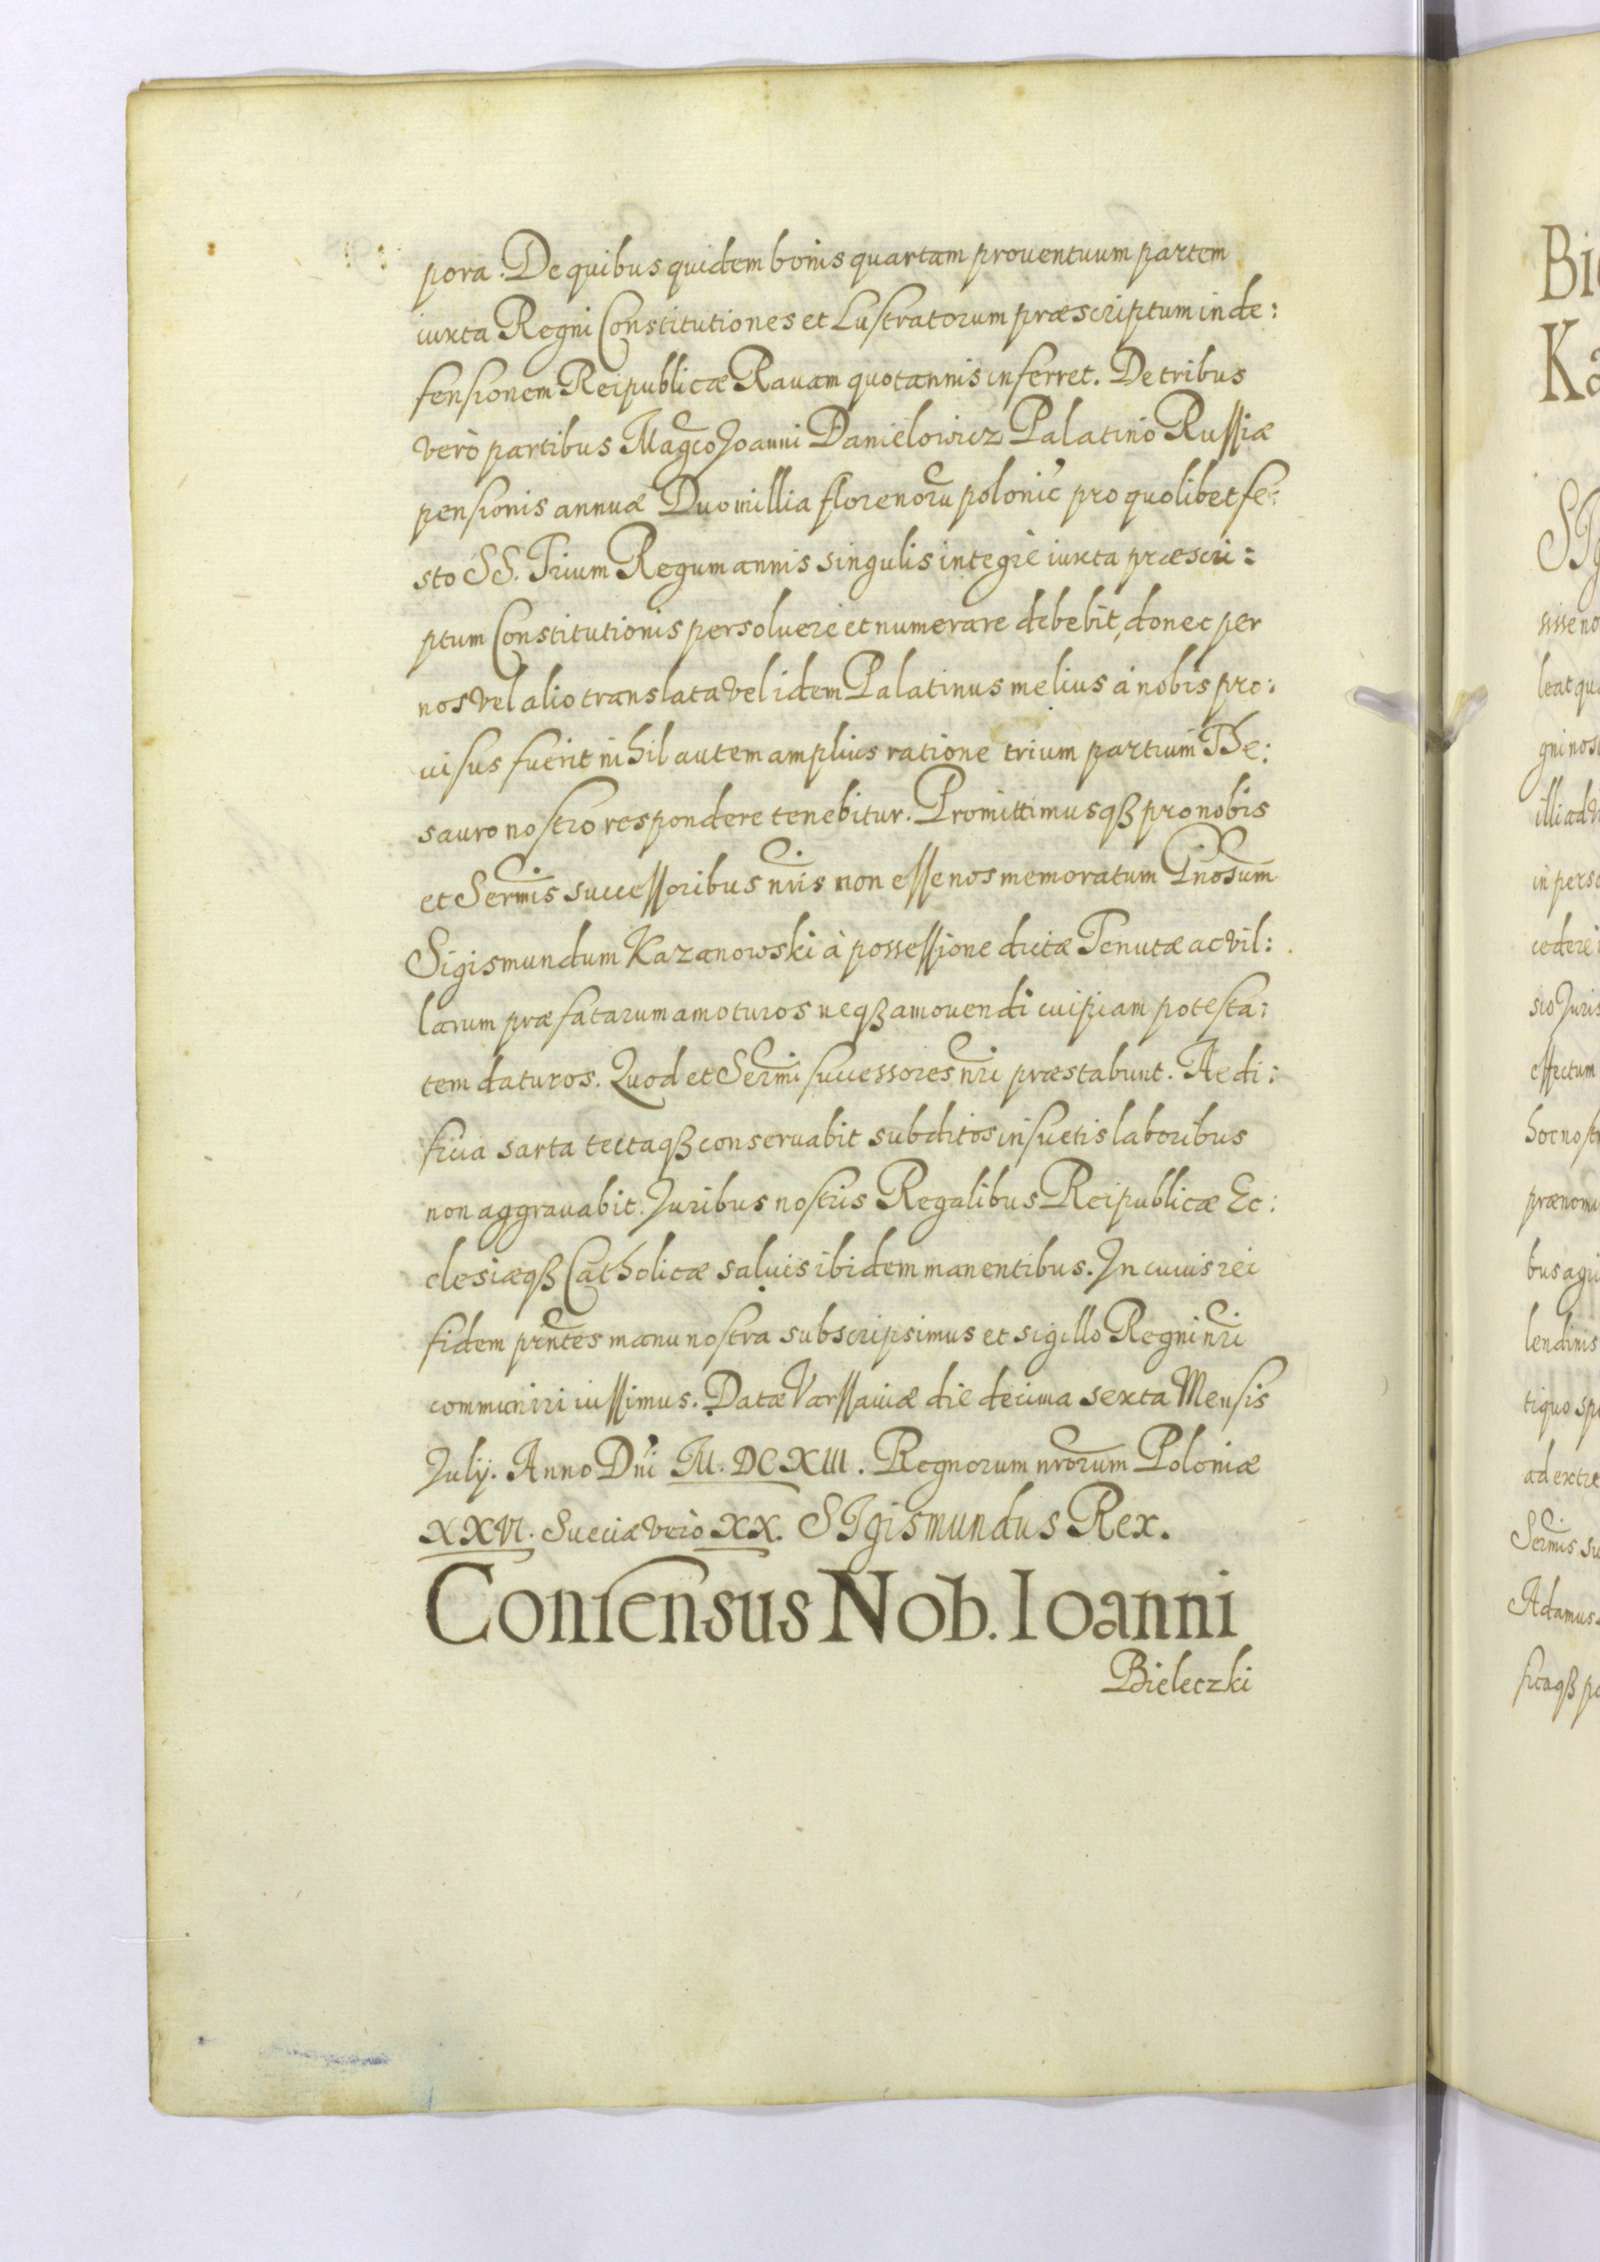 pora. De quibus quidem bonis quartam proventuum partem
iuxta Regni Constitutiones et Lustratorum præscriptum in de:
fensionem Reipublicæ Ravam quotannis inferret. De tribus
verò partibus Magco Joanni Danielowicz Palatino Russiæ
pensionis annuæ Duo millia florenorũ polonic̃ pro quolibet fe:
sto SS. Trium Regum annis singulis integrè iuxta præscri:
ptum Constitutionis persolvere et numerare debebit, donec per
nos vel alio translata vel idem Palatinus melius à nobis pro:
visus fuerit nihil autem amplius ratione trium partium The:
sauro nostro respondere tenebitur. Promittimusqȝ pro nobis
et Sermis successoribus nr̃is non esse nos memoratum Gnosum
Sigismundum Kazanowski à possessione dictæ Tenutæ ac vil:
larum præfatarum amoturos neqȝ amovendi cuipiam potesta:
tem daturos. Quod et Sermi successores nr̃i præstabunt. Aedi:
ficia sarta tectaqȝ conservabit subditos insuetis laboribus
non aggravabit. Juribus nostris Regalibus Reipublicæ Ec:
clesiæqȝ Catholicæ salvis ibidem manentibus. In cuius rei
fidem pr̃ntes manu nostra subscripsimus et sigillo Regni nr̃i
communiri iussimus. Datæ Varssaviæ die decima sexta Mensis
Julij. Anno Dni M. DC XIII. Regnorum nr̃orum Poloniæ
XXVI. Sueciæ verò XX. SIgismundus Rex.
Consensus Nob. Ioanni
Bieleczki
Bi
Ka
SIg
sisse no
leat qu
gni nos
illi ad
in pers
cedere
sio Juris
effectum
hoc nost
prænom
bus agri
lendinis
tiquo sp
ad extre
Sermis su
Adamus
sitaqȝ p